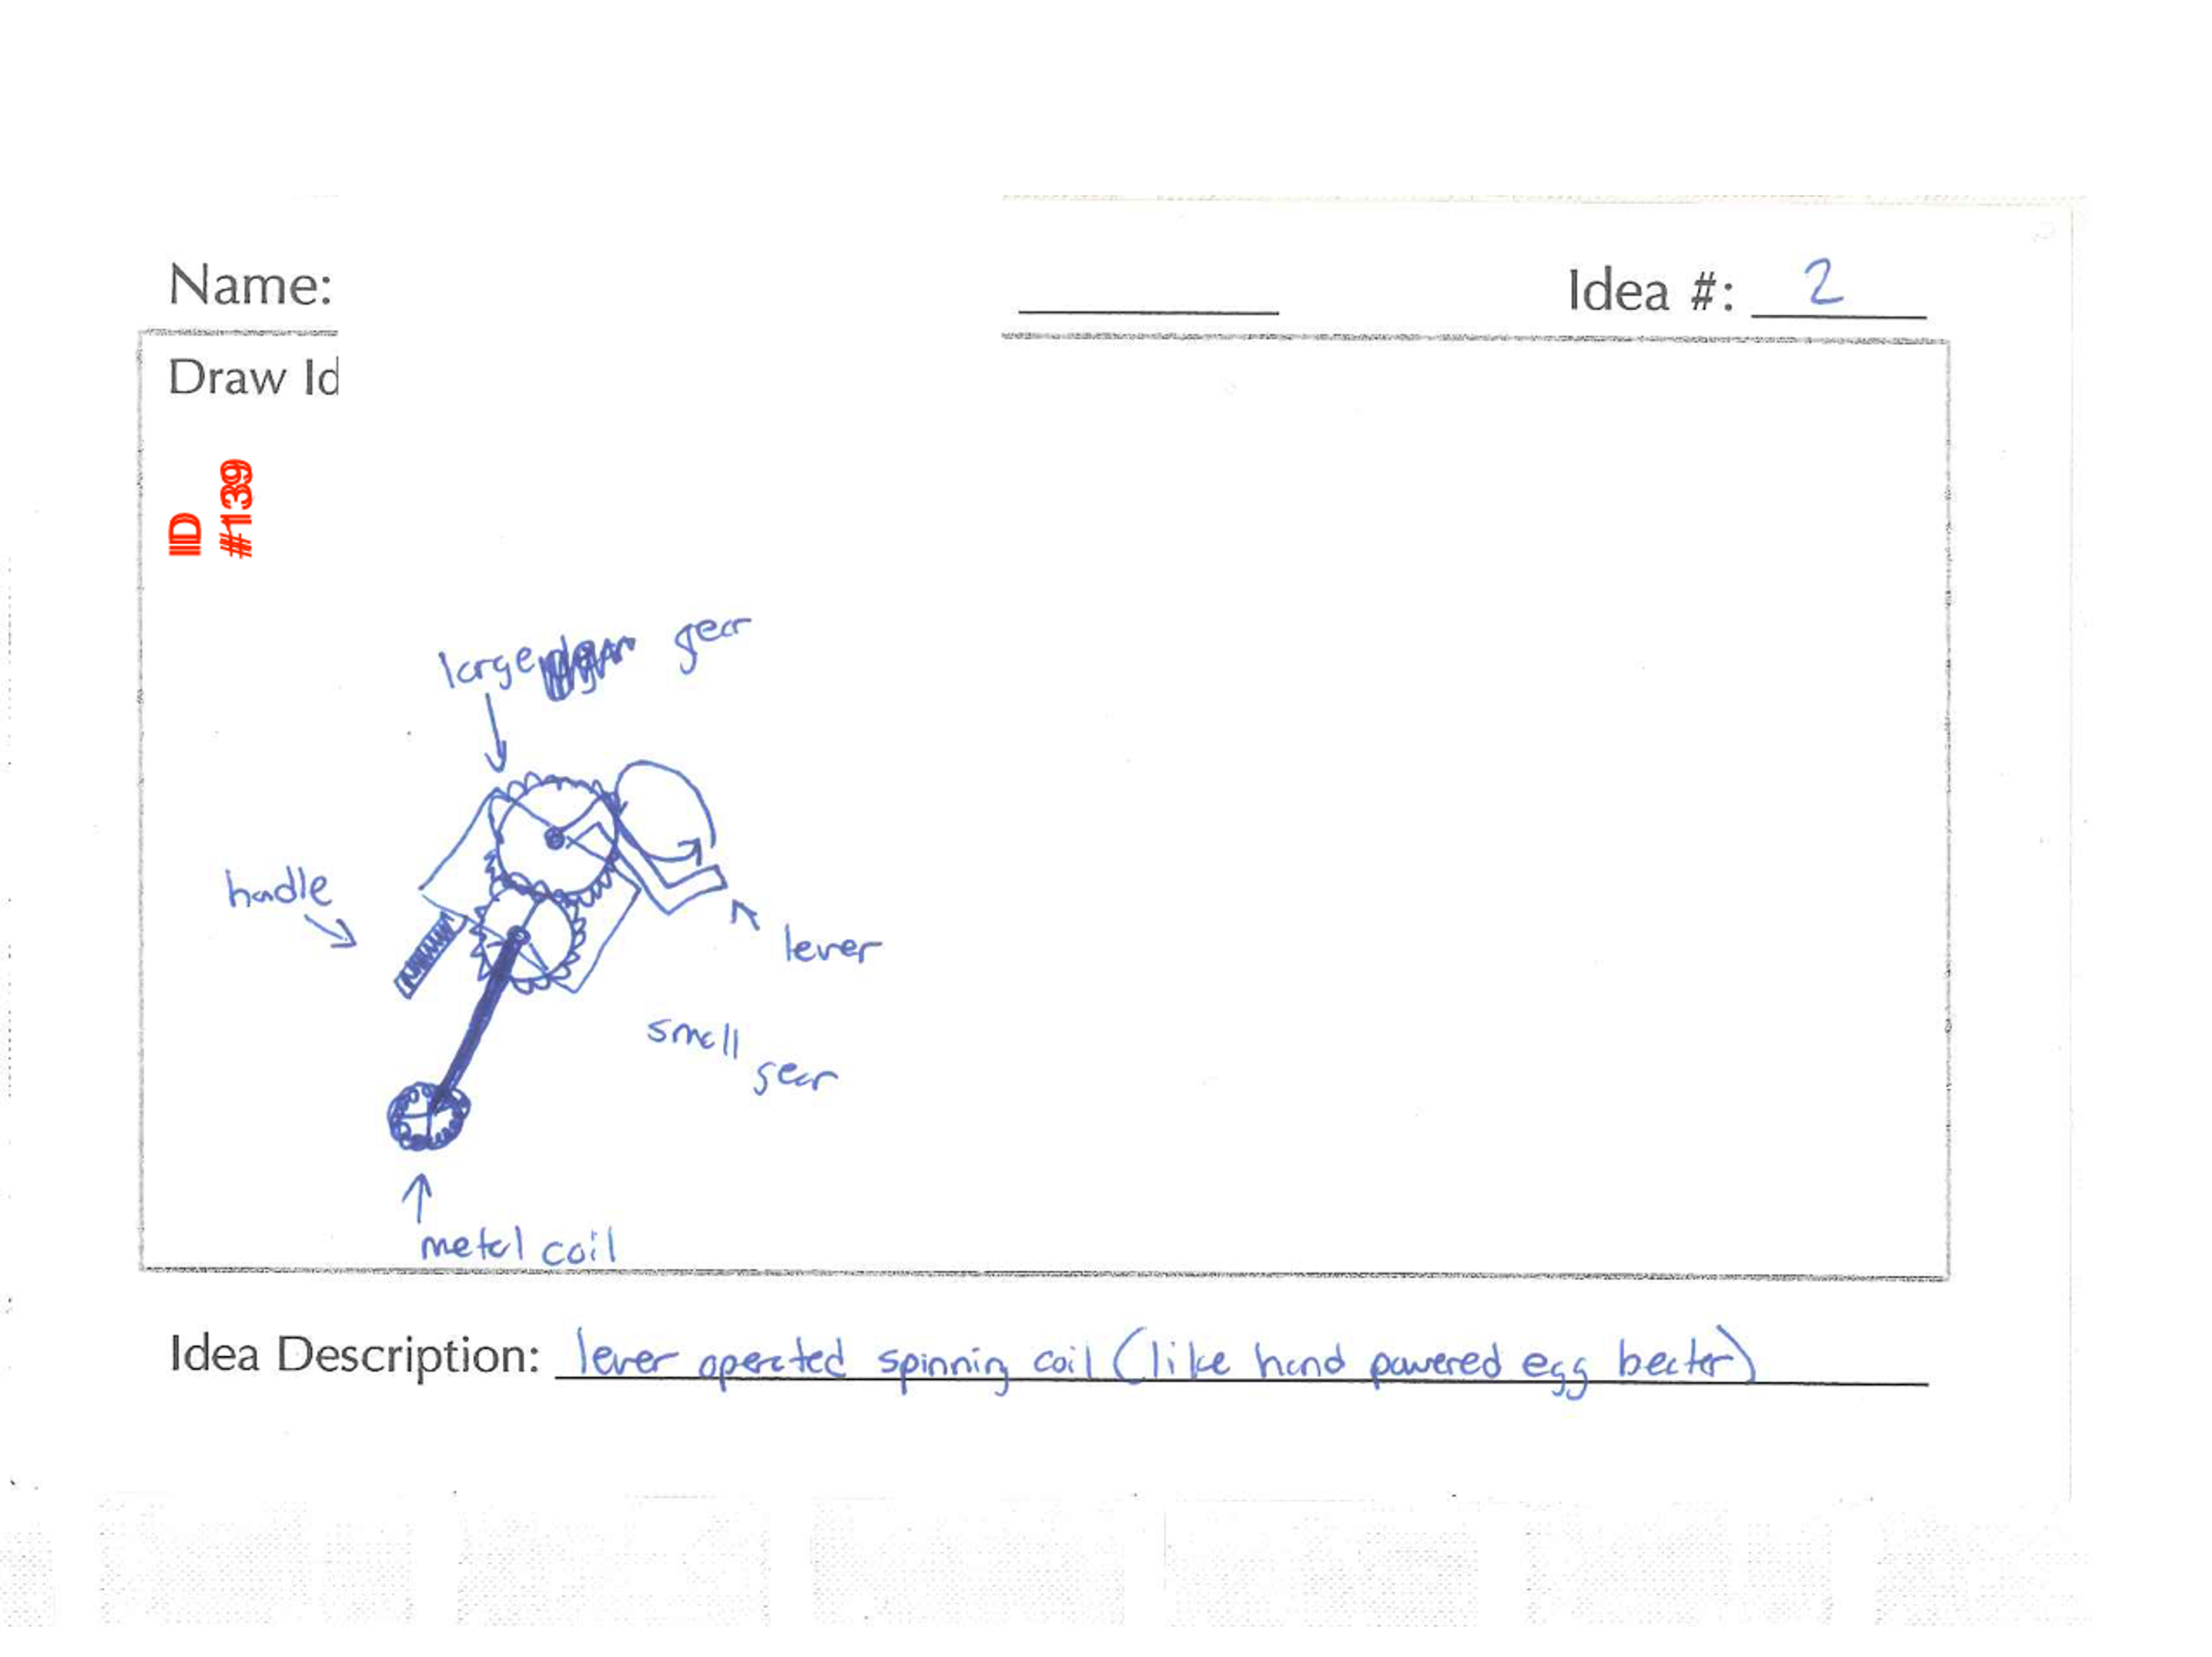 Name:
Idea #: 2
Draw Id
ID
#139
large gear
handle
lever
small
gear
metal coil
Idea Description: lever operated spinning coil (like hand powered egg beater)